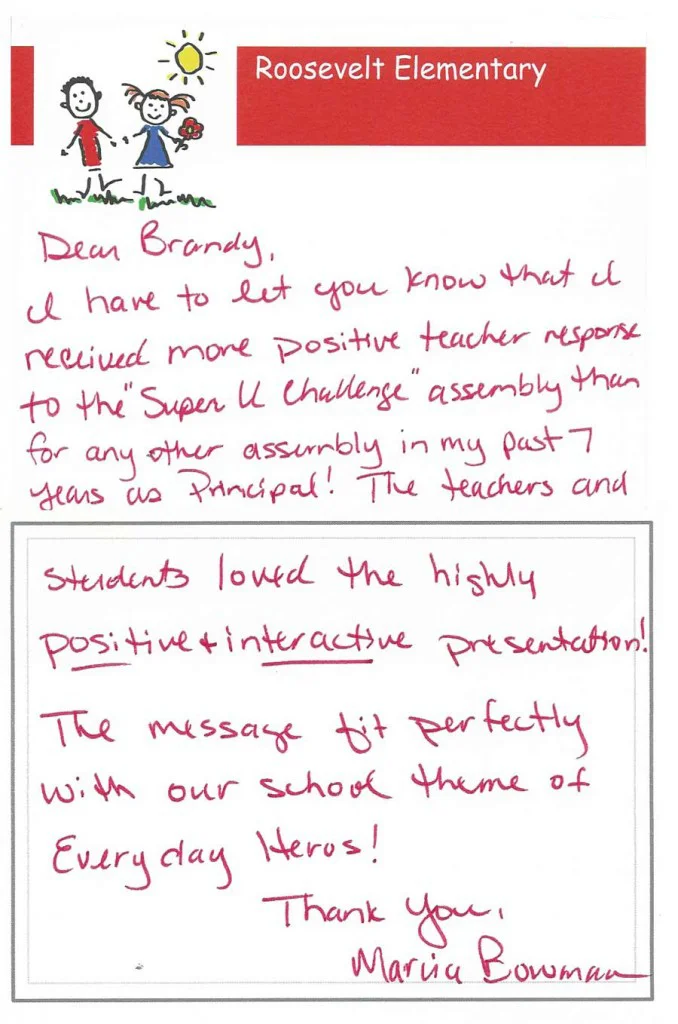 Roosevelt Elementary
Dear Brandy,
I have to let you know that I
received more positive teacher response
to the "Super U Challenge" assembly than
for any other assembly in my past 7
years as Principal! The teachers and
students loved the highly
positive + interactive presentation!
The message fit perfectly
with our school theme of
Everyday Heros!
Thank you,
Marcia Bowman